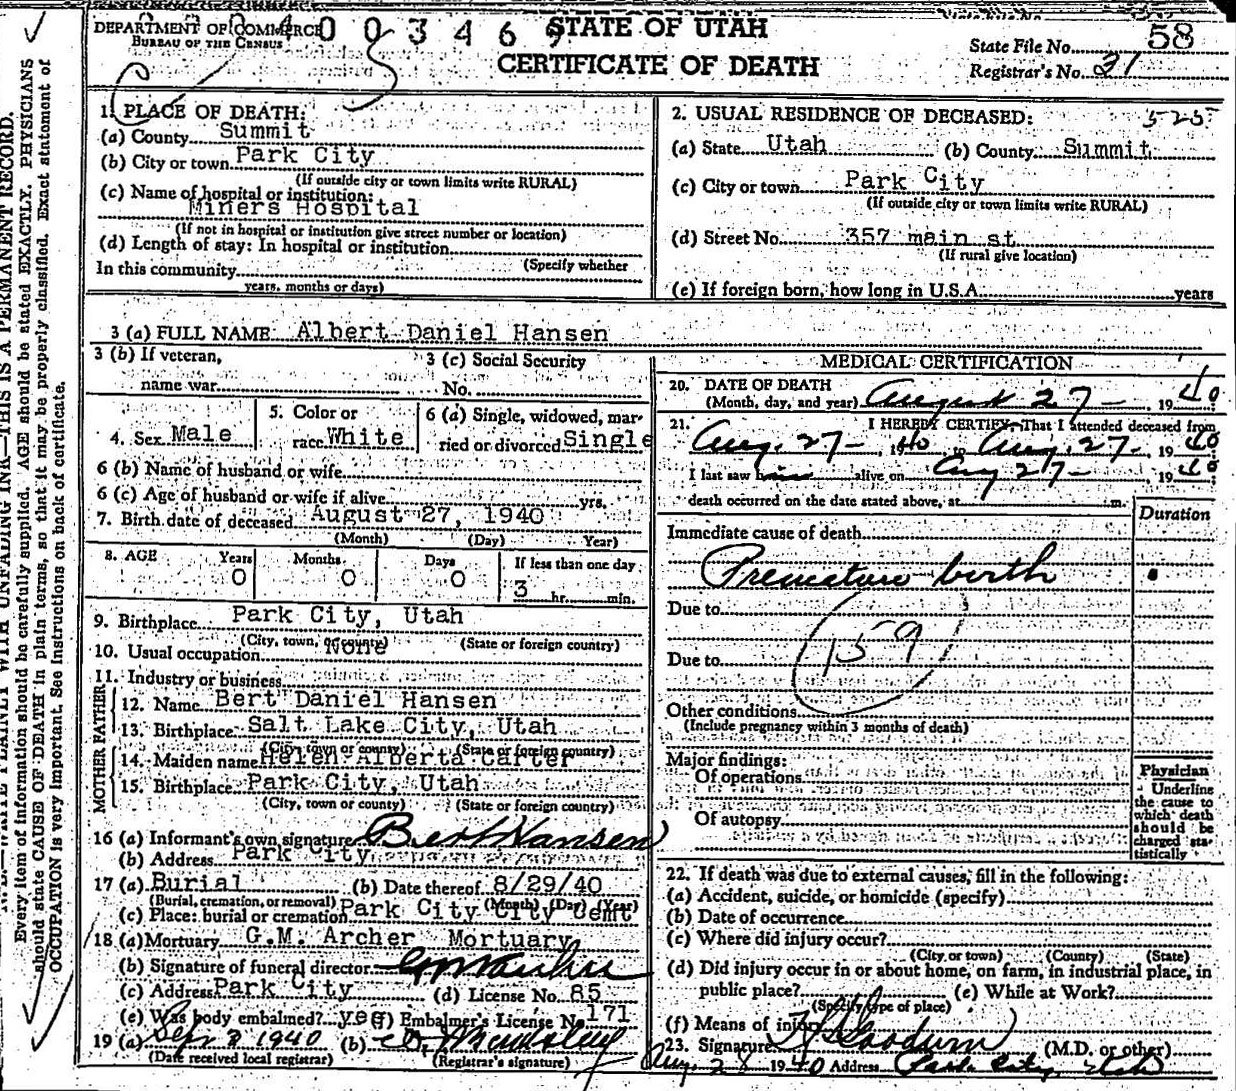 DEPARTMENT OF COMMERCE
BUREAU OF THE CENSUS
0 0 3 4 6 9
STATE OF UTAH
CERTIFICATE OF DEATH
State File No. 58
Registrar's No. 31
1. PLACE OF DEATH:
(a) County Summit
(b) City or town Park City
(If outside city or town limits write RURAL)
(c) Name of hospital or institution:
Miners Hospital
(If not in hospital or institution give street number or location)
(d) Length of stay: In hospital or institution
(Specify whether
In this community
years, months or days)
2. USUAL RESIDENCE OF DECEASED: 525
(a) State Utah (b) County Summit
(c) City or town Park City
(If outside city or town limits write RURAL)
(d) Street No. 357 main st
(If rural give location)
(e) If foreign born, how long in U.S.A. years
3 (a) FULL NAME Albert Daniel Hansen
3 (b) If veteran,
name war
3 (c) Social Security
No.
4. Sex Male
5. Color or
race White
6 (a) Single, widowed, mar-
ried or divorced Single
6 (b) Name of husband or wife
6 (c) Age of husband or wife if alive yrs.
7. Birth date of deceased August 27, 1940
(Month) (Day) Year)
8. AGE Years Months Days If less than one day
0 0 0 3 hr. min.
9. Birthplace Park City, Utah
(City, town, or county) (State or foreign country)
10. Usual occupation None
11. Industry or business
FATHER
12. Name Bert Daniel Hansen
13. Birthplace Salt Lake City, Utah
(City, town or county) (State or foreign country)
MOTHER
14. Maiden name Helen Alberta Carter
15. Birthplace Park City, Utah
(City, town or county) (State or foreign country)
16 (a) Informant's own signature Bert Hansen
(b) Address Park City
17 (a) Burial (b) Date thereof 8/29/40
(Burial, cremation, or removal) (Month) (Day) (Year)
(c) Place: burial or cremation Park City City Cemt
18 (a) Mortuary G.M. Archer Mortuary
(b) Signature of funeral director
(c) Address Park City (d) License No. 85
(e) Was body embalmed? yes (f) Embalmer's License No. 171
19 (a) Sep 2 1940 (b)
(Date received local registrar) (Registrar's signature)
MEDICAL CERTIFICATION
20. DATE OF DEATH
(Month, day, and year) August 27 - 19 40
21. I HEREBY CERTIFY, That I attended deceased from
Aug. 27 - 19 40 to Aug. 27 - 19 40
I last saw him alive on Aug 27 - 19 40
death occurred on the date stated above, at m.
Duration
Immediate cause of death
Premature birth
Due to
159
Due to
Other conditions
(Include pregnancy within 3 months of death)
Major findings:
Of operations
Of autopsy
Physician
Underline
the cause to
which death
should be
charged sta-
tistically
22. If death was due to external causes, fill in the following:
(a) Accident, suicide, or homicide (specify)
(b) Date of occurrence
(c) Where did injury occur?
(City or town) (County) (State)
(d) Did injury occur in or about home, on farm, in industrial place, in
public place? (e) While at Work?
(Specify type of place)
(f) Means of injury
23. Signature (M.D. or other)
Aug. 28 1940 Address Park City, Utah
WRITE PLAINLY WITH UNFADING INK—THIS IS A PERMANENT RECORD.
Every item of information should be carefully supplied. AGE should be stated EXACTLY. PHYSICIANS
should state CAUSE OF DEATH in plain terms, so that it may be properly classified. Exact statement of
OCCUPATION is very important. See Instructions on back of certificate.